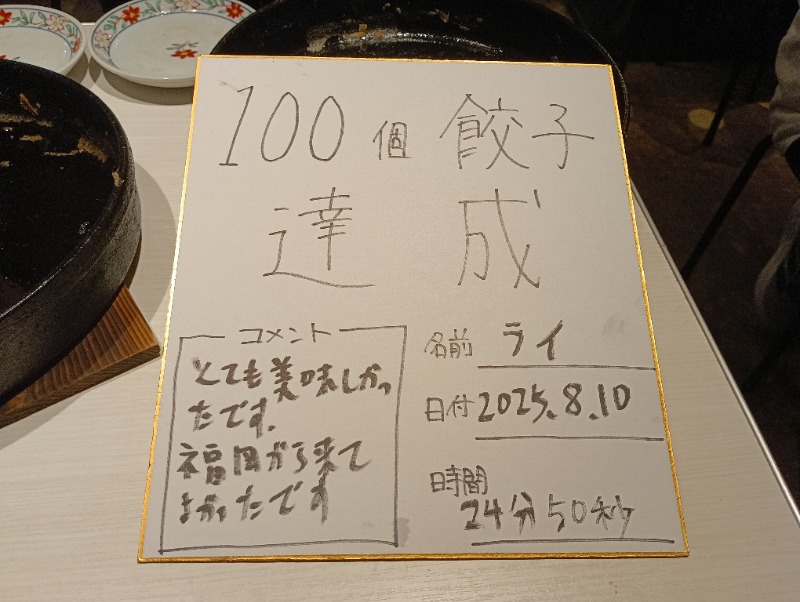 100個 餃子
達成
コメント
とても美味しかっ
たです.
福岡から来て
よかったです
名前 ライ
日付 2025.8.10
時間
24分50秒